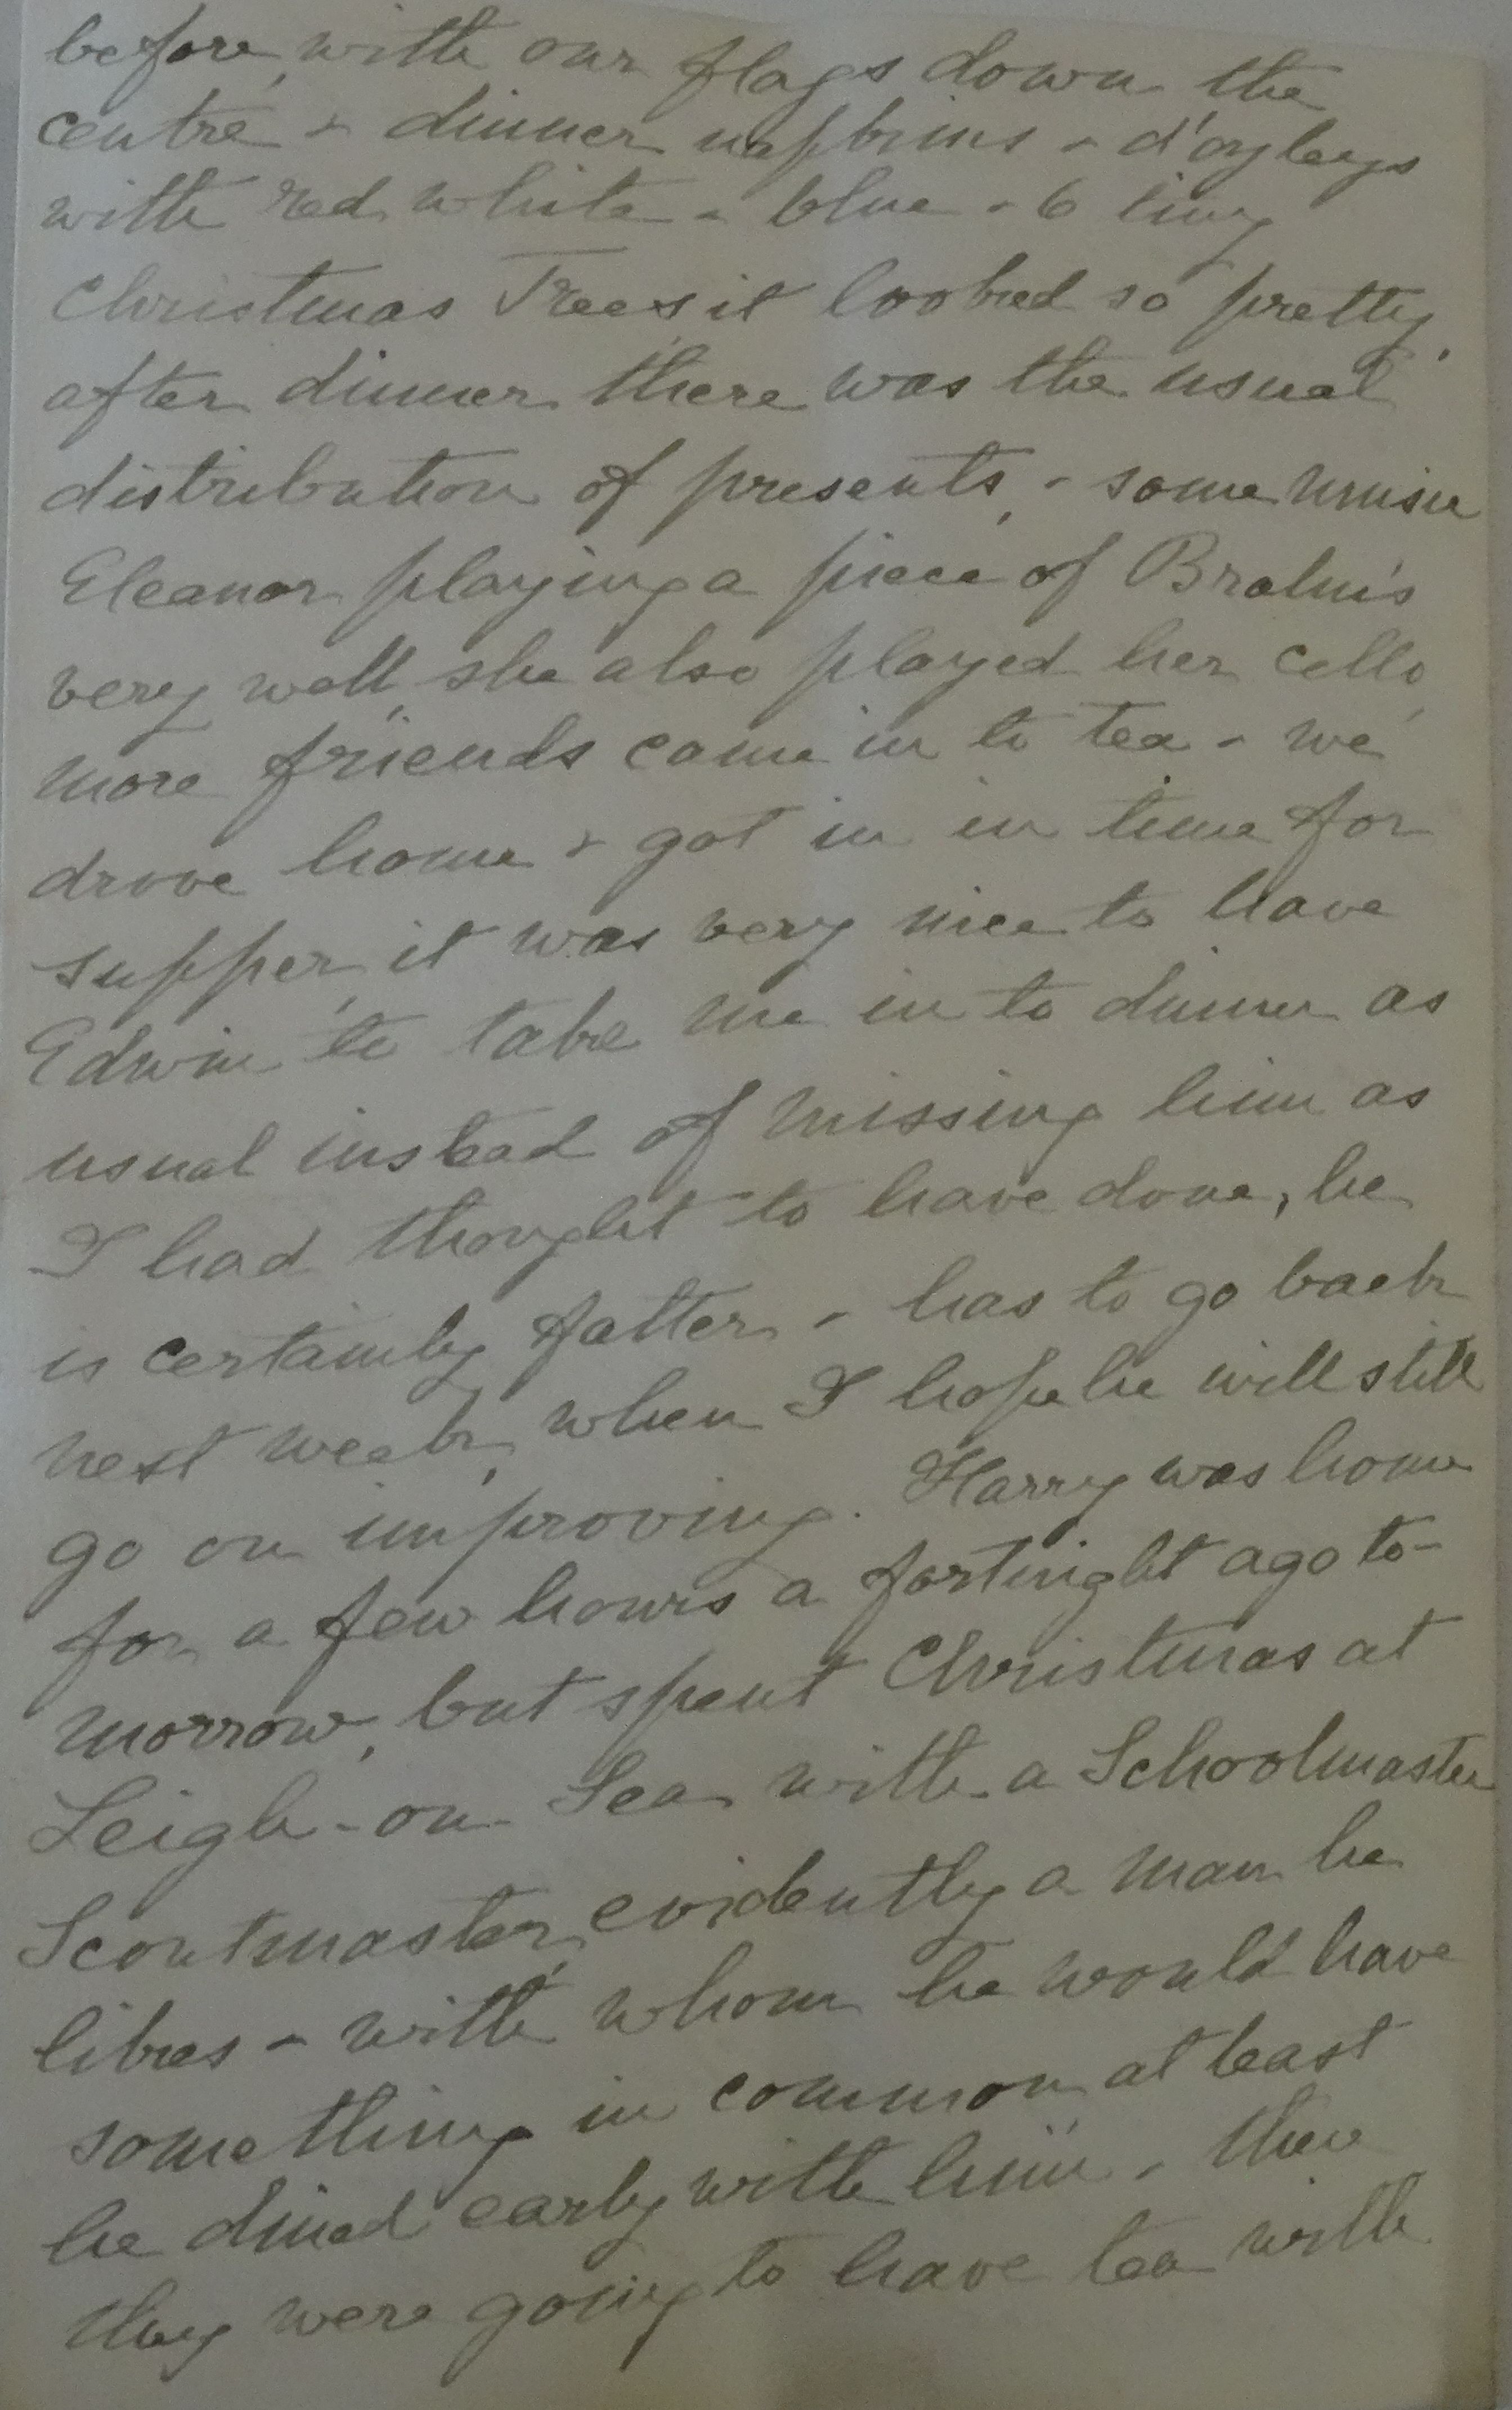 before, with our flags down the
centre & dinner napkins & d'oyleys
with red white & blue & 6 tiny
Christmas Trees, it looked so pretty,
after dinner there was the usual
distribution of presents, & some music
Eleanor playing a piece of Brahm's
very well, she also played her cello,
more friends came in to tea & we
drove home & got in in time for
supper, it was very nice to have
Edwin to take me in to dinner as
usual instead of missing him as
I had thought to have done, he
is certainly fatter & has to go back
next week, when I hope he will still
go on improving. Harry was home
for a few hours a fortnight ago to-
morrow, but spent Christmas at
Leigh-on-Sea with a Schoolmaster
Scoutmaster, evidently a man he
likes & with whom he would have
something in common at least
he dined early with him & then
they were going to have tea with